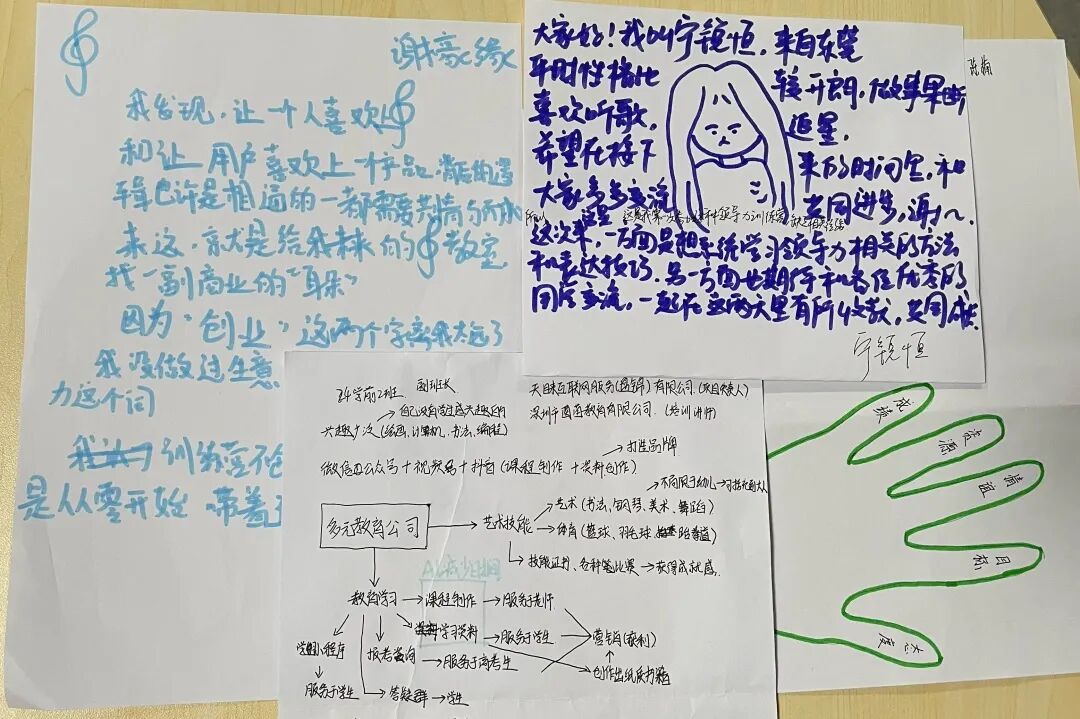 谢 缘
我发现,让一个人喜欢上
和让用户喜欢上一样产品,背后的逻
辑也许是相通的一都需要共情与
来这,就是给我未来的 教室
找一副商业的“耳朵”
因为“创业”这两个字离我太远了
我没做过生意
力这个词
训练营不
是从零开始 带着
大家好!我叫宁镜恒,来自东莞
平时性格比较开朗,做事果断
喜欢听歌,追星,
希望在接下来的时间里,和
大家多多交流共同进步,谢谢~
这次来,一方面是想系统学习领导力相关的方法
和表达技巧.另一方面也期待和各位优秀的
同学交流,一起在这两天里有所收获,共同成长.
宁镜恒
24学前2班 副班长
天目来互联网服务(盘锦)有限公司.(项目负责人)
深圳千 教育有限公司.(培训讲师)
兴趣广泛(绘画、计算机、书法、编程)
微信公众号+视频号+抖音(课程制作+资料创作)
打造品牌
不局限于幼儿
多元教育公司
艺术技能
艺术(书法、钢琴、美术、舞蹈)
体育(篮球、羽毛球、跆拳道)
技能证书、各种笔比赛
获得成就感.
教育学习
课程制作
服务于老师
学习资料
服务于学生
营销(获利)
小程序
报考咨询
服务于高考生
创作出纸质书籍
服务于学生
答疑群
学生
陈
成绩
资源
情谊
目标
态度